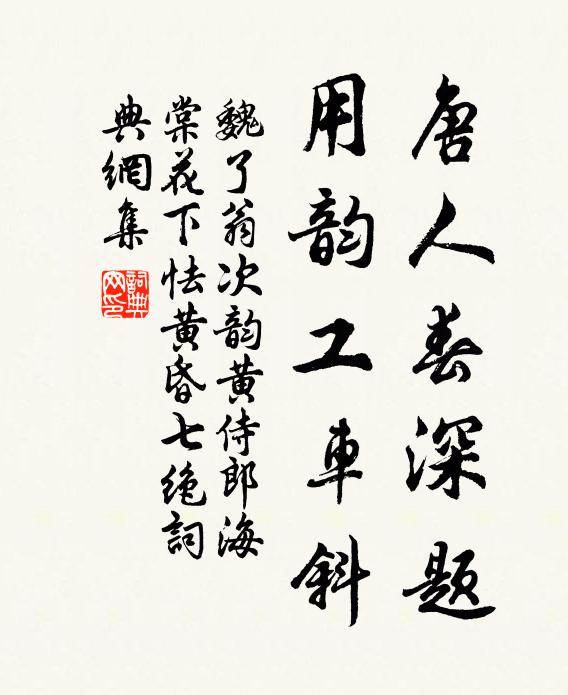 唐人春深题
用韵工車斜
魏了翁次韵黄侍郎海
棠花下怯黄昏七绝詞
典網集
詞典网印